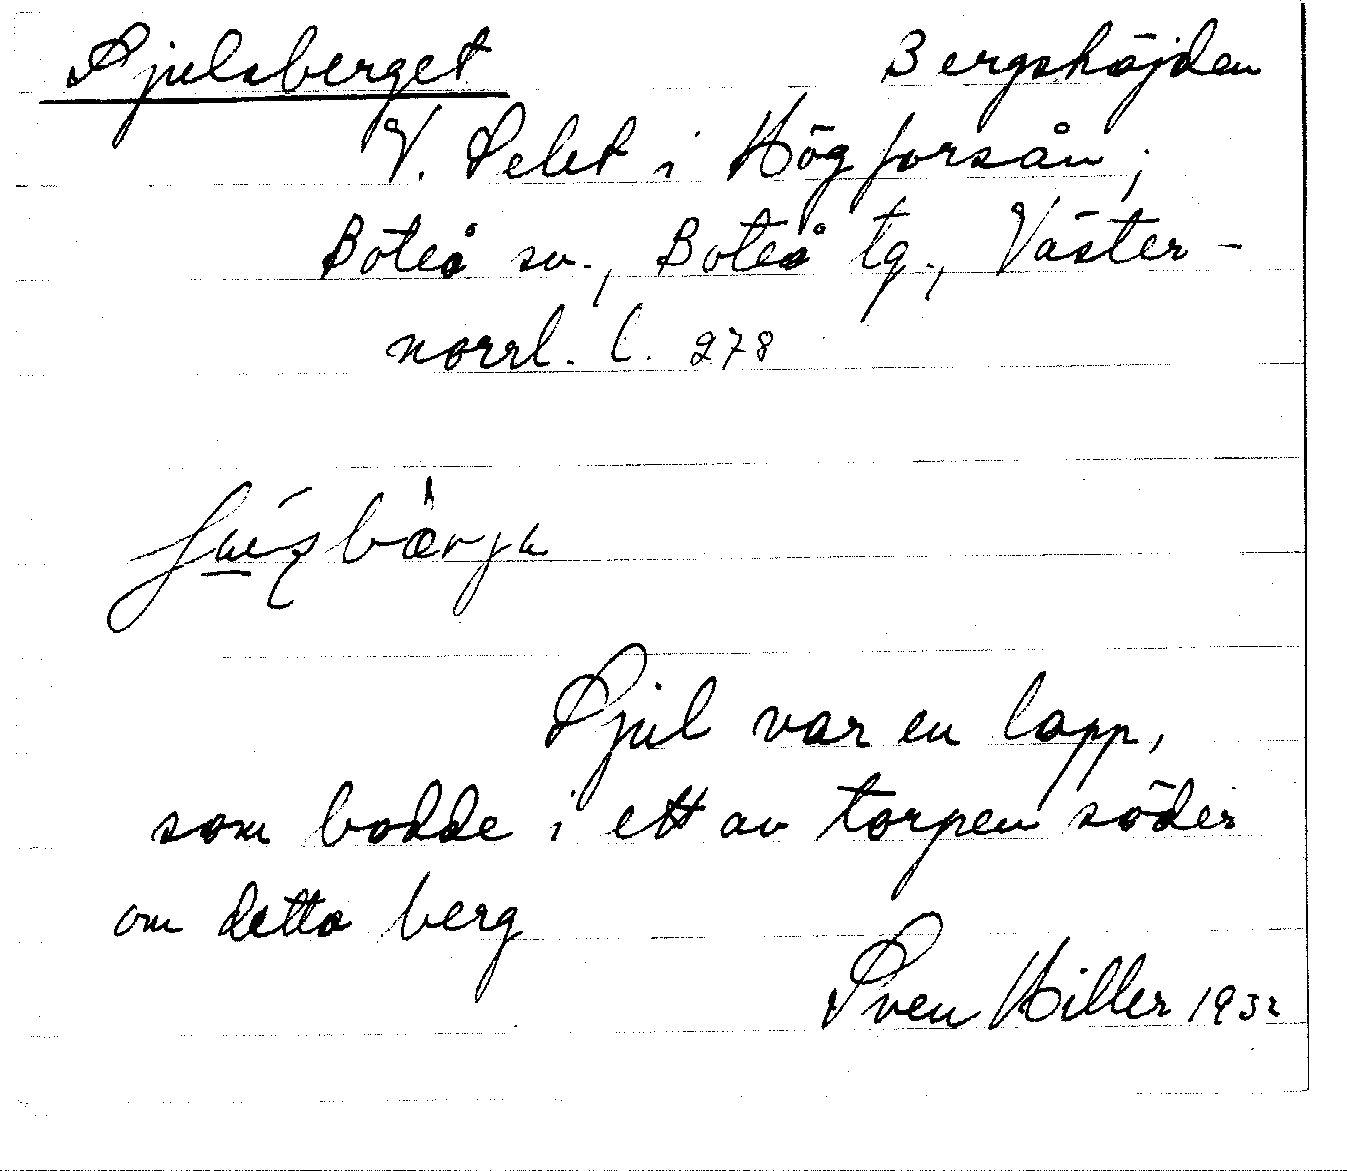 Sjulsberget Bergshöjden
V. Selet i Högforsån;
Boteå sn., Boteå tg., Väster-
norrl. l. 278
Sjul var en lapp,
som bodde i ett av torpen söder
om detta berg
Sven Hiller 1932